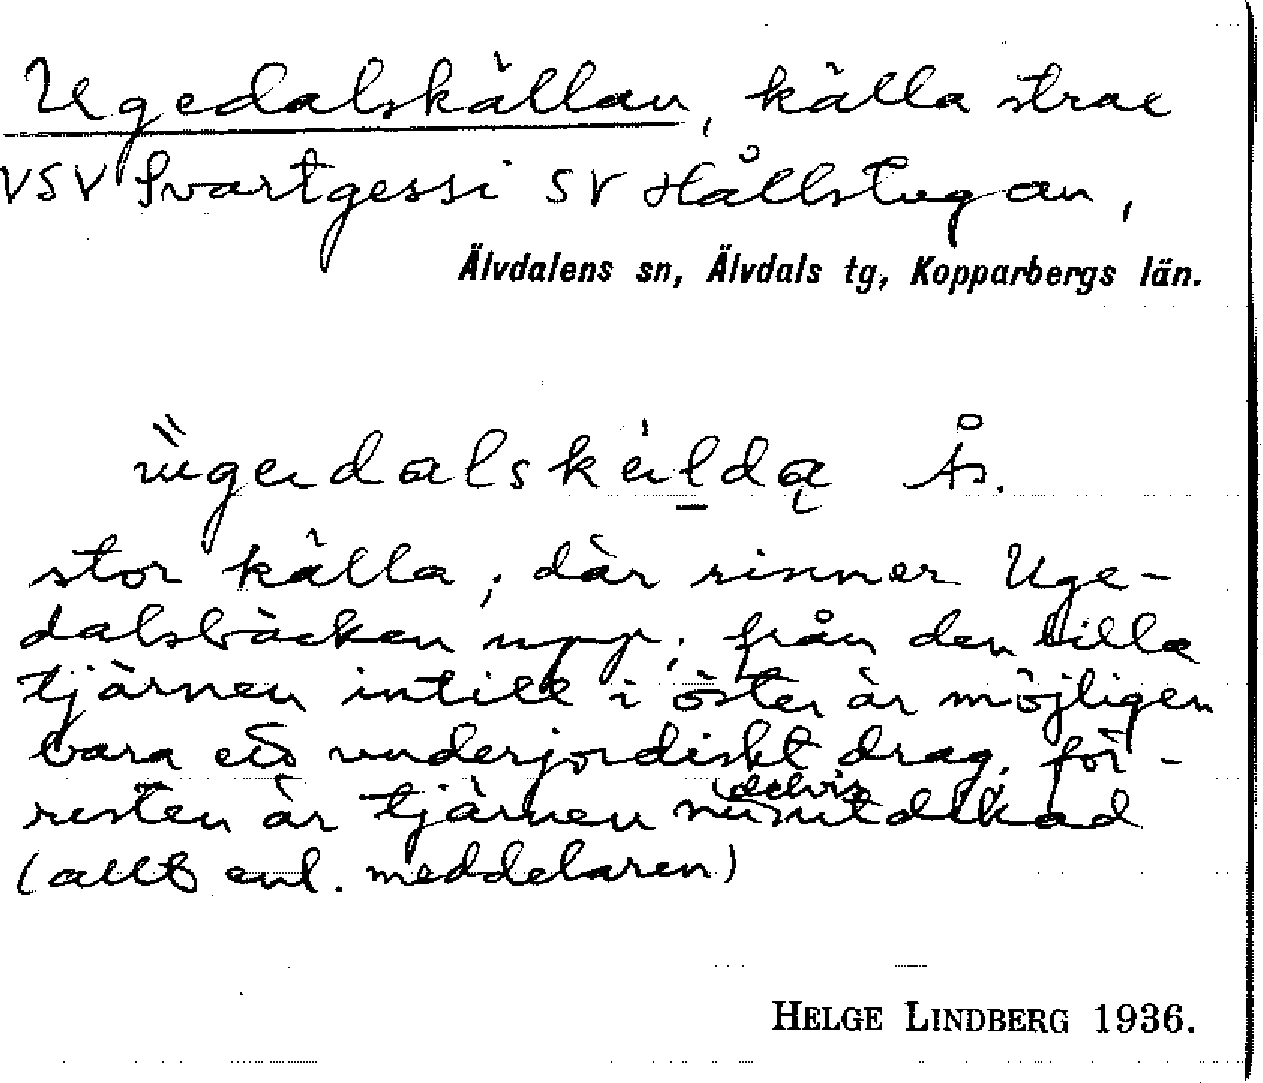 Ugedalskällan, källa strax
VSV Svartgessi SV Hållstugan,
Älvdalens sn, Älvdals tg, Kopparbergs län.
Ås.
stor källa; där rinner Uge-
dalsbäcken upp; från den lilla
tjärnen intill i öster är möjligen
bara ett underjordiskt drag; för-
resten är tjärnen nu delvis utdikad
(allt enl. meddelaren)
HELGE LINDBERG 1936.